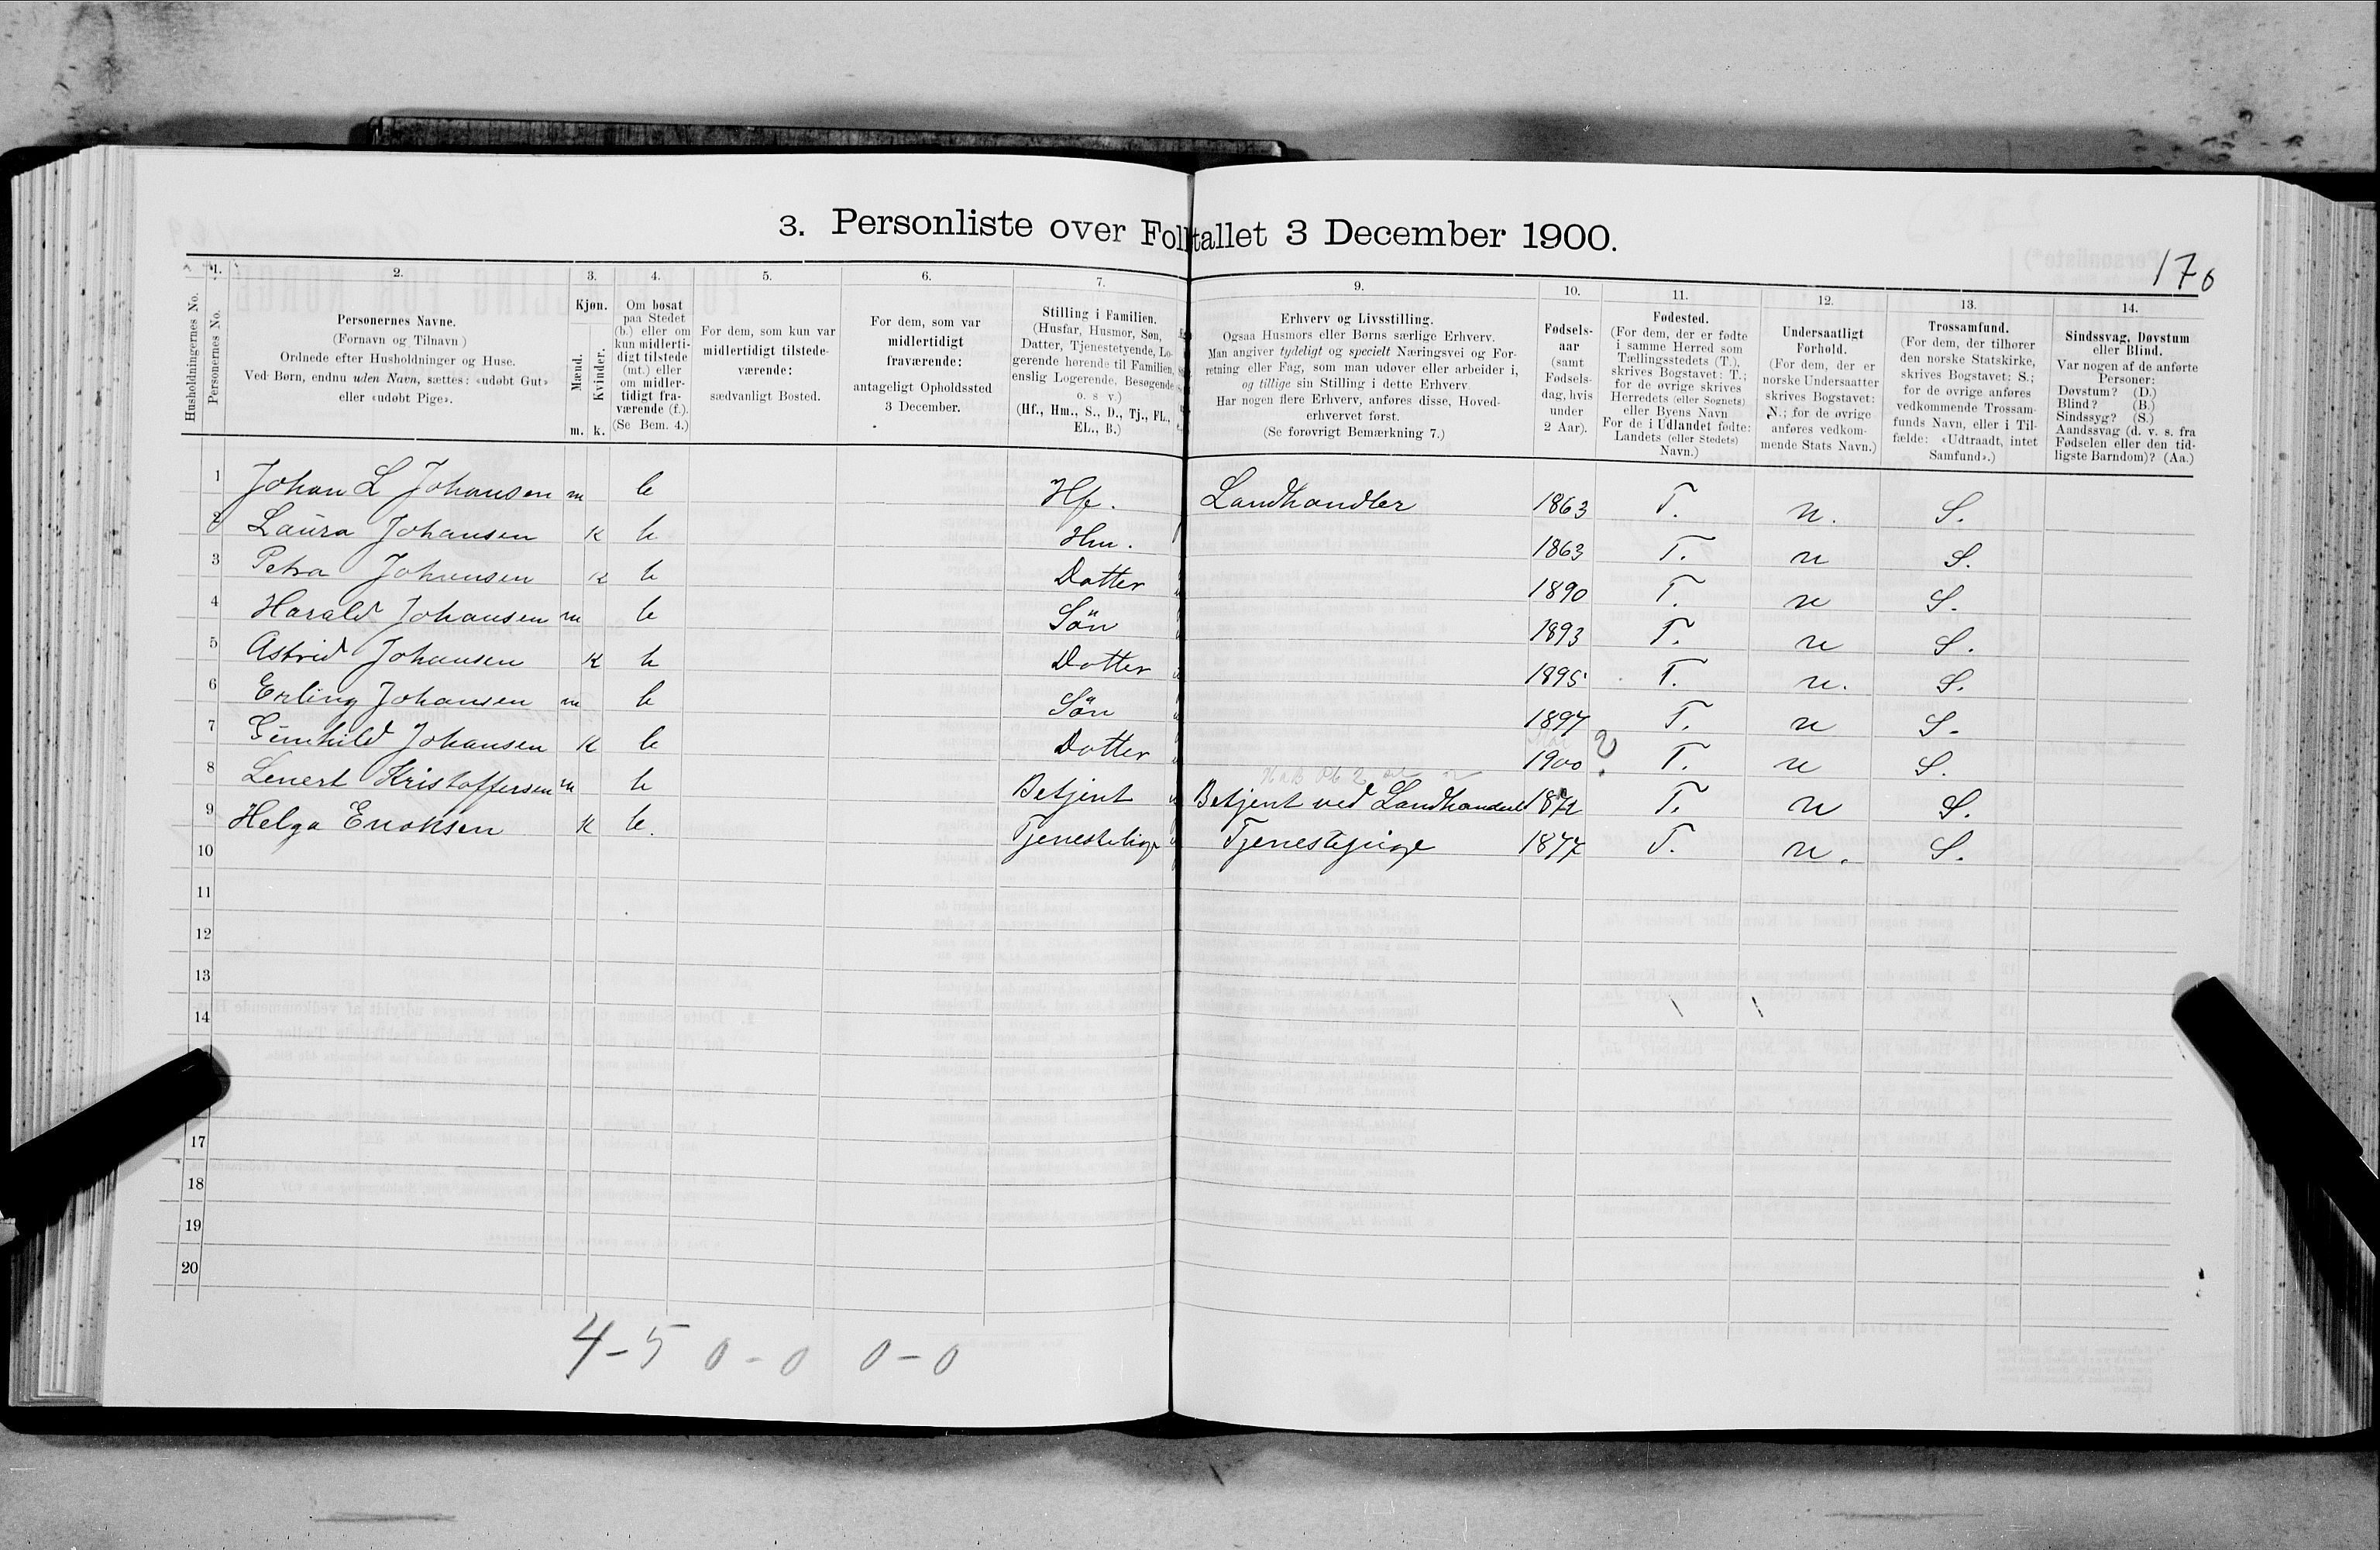 3. Personliste over Folketallet 3 December 1900.
176
1. 2. 3. 4. 5. 6. 7. 9. 10. 11. 12. 13. 14.
Husholdningernes No.
Personernes No.
Personernes Navne.
(Fornavn og Tilnavn)
Ordnede efter Husholdninger og Huse.
Ved Børn, endnu uden Navn, sættes: «udøbt Gut»
eller «udøbt Pige».
Kjøn.
Mænd.
Kvinder.
m. k.
Om bosat
paa Stedet
(b.) eller om
kun midlerti-
digt tilstede
(mt.) eller
om midler-
tidigt fra-
værende (f.).
(Se Bem. 4.)
For dem, som kun var
midlertidigt tilstede-
værende:
sædvanligt Bosted.
For dem, som var
midlertidigt
fraværende:
antageligt Opholdssted
3 December.
Stilling i Familien.
(Husfar, Husmor, Søn,
Datter, Tjenestetyende, Lo-
gerende hørende til Familien,
enslig Logerende, Besøgende
o. s v.)
(Hf., Hm., S., D., Tj., FL.,
EL., B.)
Erhverv og Livsstilling.
Ogsaa Husmors eller Børns særlige Erhverv.
Man angiver tydeligt og specielt Næringsvei og For-
retning eller Fag, som man udøver eller arbeider i,
og tillige sin Stilling i dette Erhverv
Har nogen flere Erhverv, anføres disse, Hoved-
erhvervet først.
(Se forøvrigt Bemærkning 7.)
Fødsels-
aar
(samt
Fødsels-
dag, hvis
under
2 Aar).
Fødested.
(For dem, der er fødte
i samme Herred som
Tællingsstedets (T.),
skrives Bogstavet: T.;
for de øvrige skrives
Herredets (eller Sognets)
eller Byens Navn
For de i Udlandet fødte:
Landets (eller Stedets)
Navn.)
Undersaatligt
Forhold.
(For dem, der er
norske Undersaatter
skrives Bogstavet:
N.; for de øvrige
anføres vedkom-
mende Stats Navn.)
Trossamfund.
(For dem, der tilhører
den norske Statskirke,
skrives Bogstavet: S.;
for de øvrige anføres
vedkommende Trossam-
funds Navn, eller i Til-
fælde: «Udtraadt, intet
Samfund».)
Sindssvag, Døvstum
eller Blind.
Var nogen af de anførte
Personer:
Døvstum? (D.)
Blind? (B.)
Sindssyg? (S.)
Aandssvag (d. v. s. fra
Fødselen eller den tid-
ligste Barndom)? (Aa.)
1 Johan L Johansen m b Hf. Landhandler 1863 T. n. S.
2 Laura Johansen K b Hm. 1863 T. n S.
3 Petra Johansen K b Datter 1890 T. n S.
4 Harald Johansen m b Sön 1893 T. n S.
5 Astrid Johansen K b Datter 1895 T. n. S.
6 Erling Johansen m b Sön 1897 T. n S.
7 Gunhild Johansen K b Datter 1900 ? T. n S.
8 Lenert Kristoffersen m b Betjent Betjent ved Landhandel 1872 T. n S.
9 Helga Enoksen K b. Tjenestepige Tjenestepige 1877 T. n. S.
10
11
12
13
14
17
18
19
20
4-5 0-0 0-0